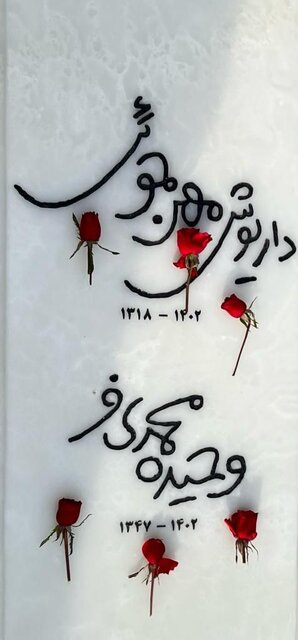 داریوش مهرجوئی
۱۳۱۸ - ۱۴۰۲
وحیده محمدی فر
۱۳۴۷ - ۱۴۰۲